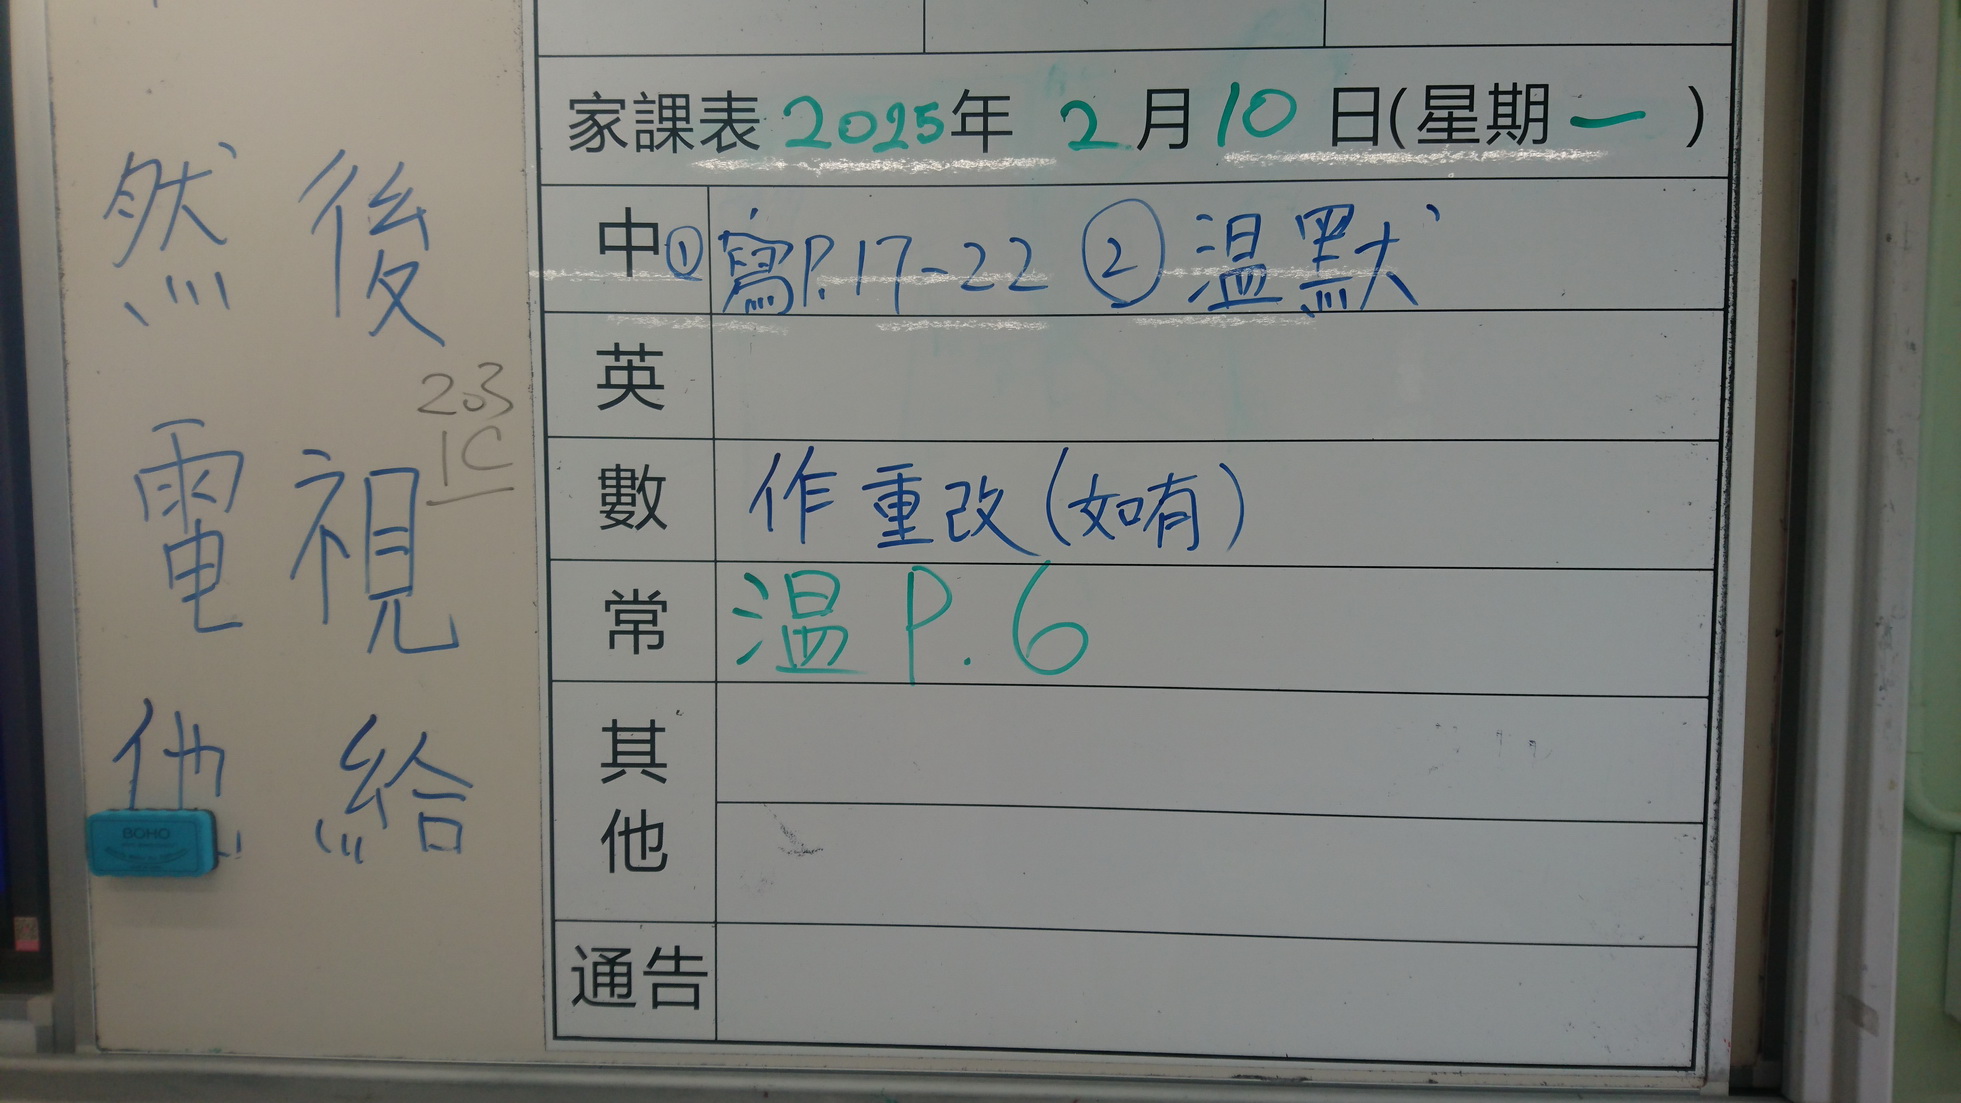 然後
203
1C
電視
他給
BOHO
家課表 2025年 2月10日(星期一)
中 ① 寫P.17-22 ② 温默
英
數 作 重改(如有)
常 温 P.6
其他
通告